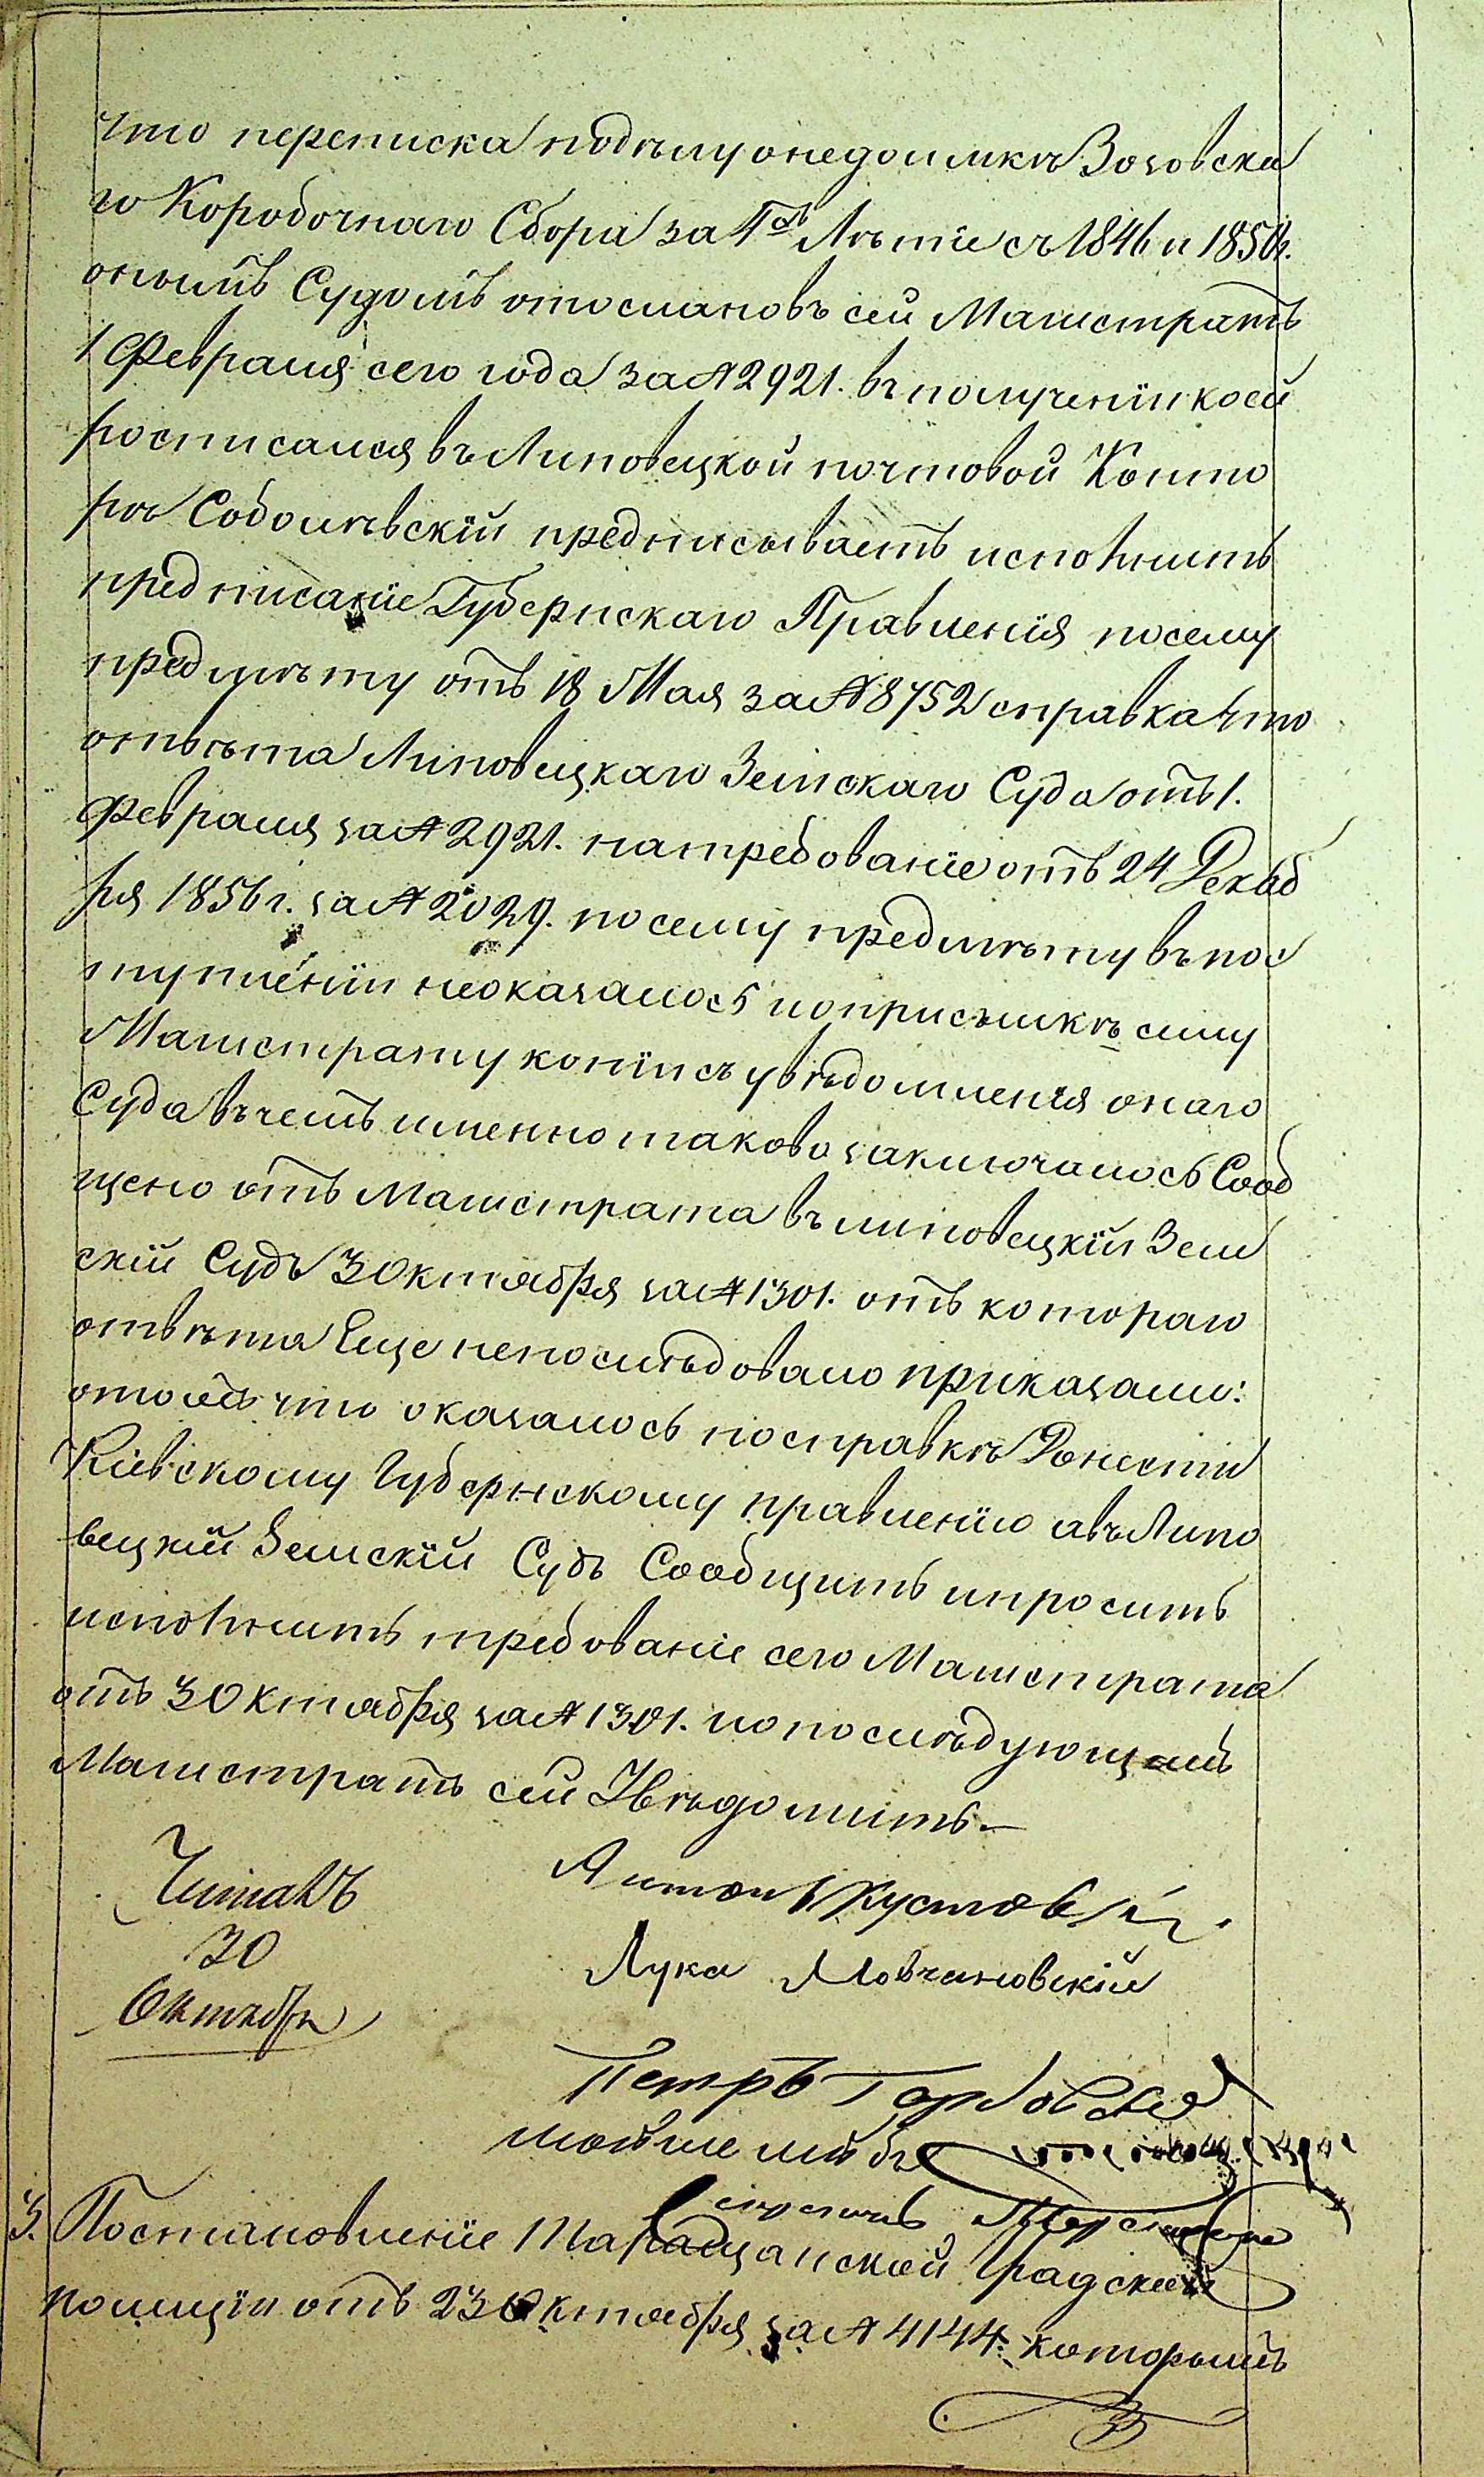 что переписка подѣлу онедоимкѣ Зозовска
го Коробочнаго Сбора за 4хъ Лѣтіе съ 1846 и 1850г.
онымъ Судомъ отослановъ сей Магистратъ
1 Февраля сего года за № 2921. въ полученіи коей
росписался въ Липовецкой почтовой Конто
рѣ Соболѣвскій предписываетъ исполнить
предписаніе Губернскаго Правленія посему
предмѣту отъ 18 Мая за № 8752 справка что
отвѣта Липовецкаго Земскаго Суда отъ 1.
Февраля за № 2921. натребованіе отъ 24 Декаб
ря 1856 г. за № 2029. посему предмѣту въ пос
тупленіи неоказалось и оприсылкѣ сему
Магистрату копіи съ увѣдомленія онаго
Суда въ чемъ именно таково заключалось Сооб
щено отъ Магистрата въ липовецкій Зем
скій Судъ 3 Октября за № 1301. отъ котораго
отвѣта Еще непослѣдовало приказали:
отомъ что оказалось посправкѣ Донести
Кіевскому Губернскому правленію авъ Липо
вецкій Земскій Судъ Сообщить ипросить
исполнить требованіе сего Магистрата
отъ 3 Октября за № 1301. ипопослѣдующемъ
Магистратъ сей Увѣдомить.
Читалъ
30
Октября
Антонъ Кустов
Лука Мовчановскій
Петръ
3. Постановленіе Таращанской градской
полиціи отъ 23 Октября за № 4144. которымъ